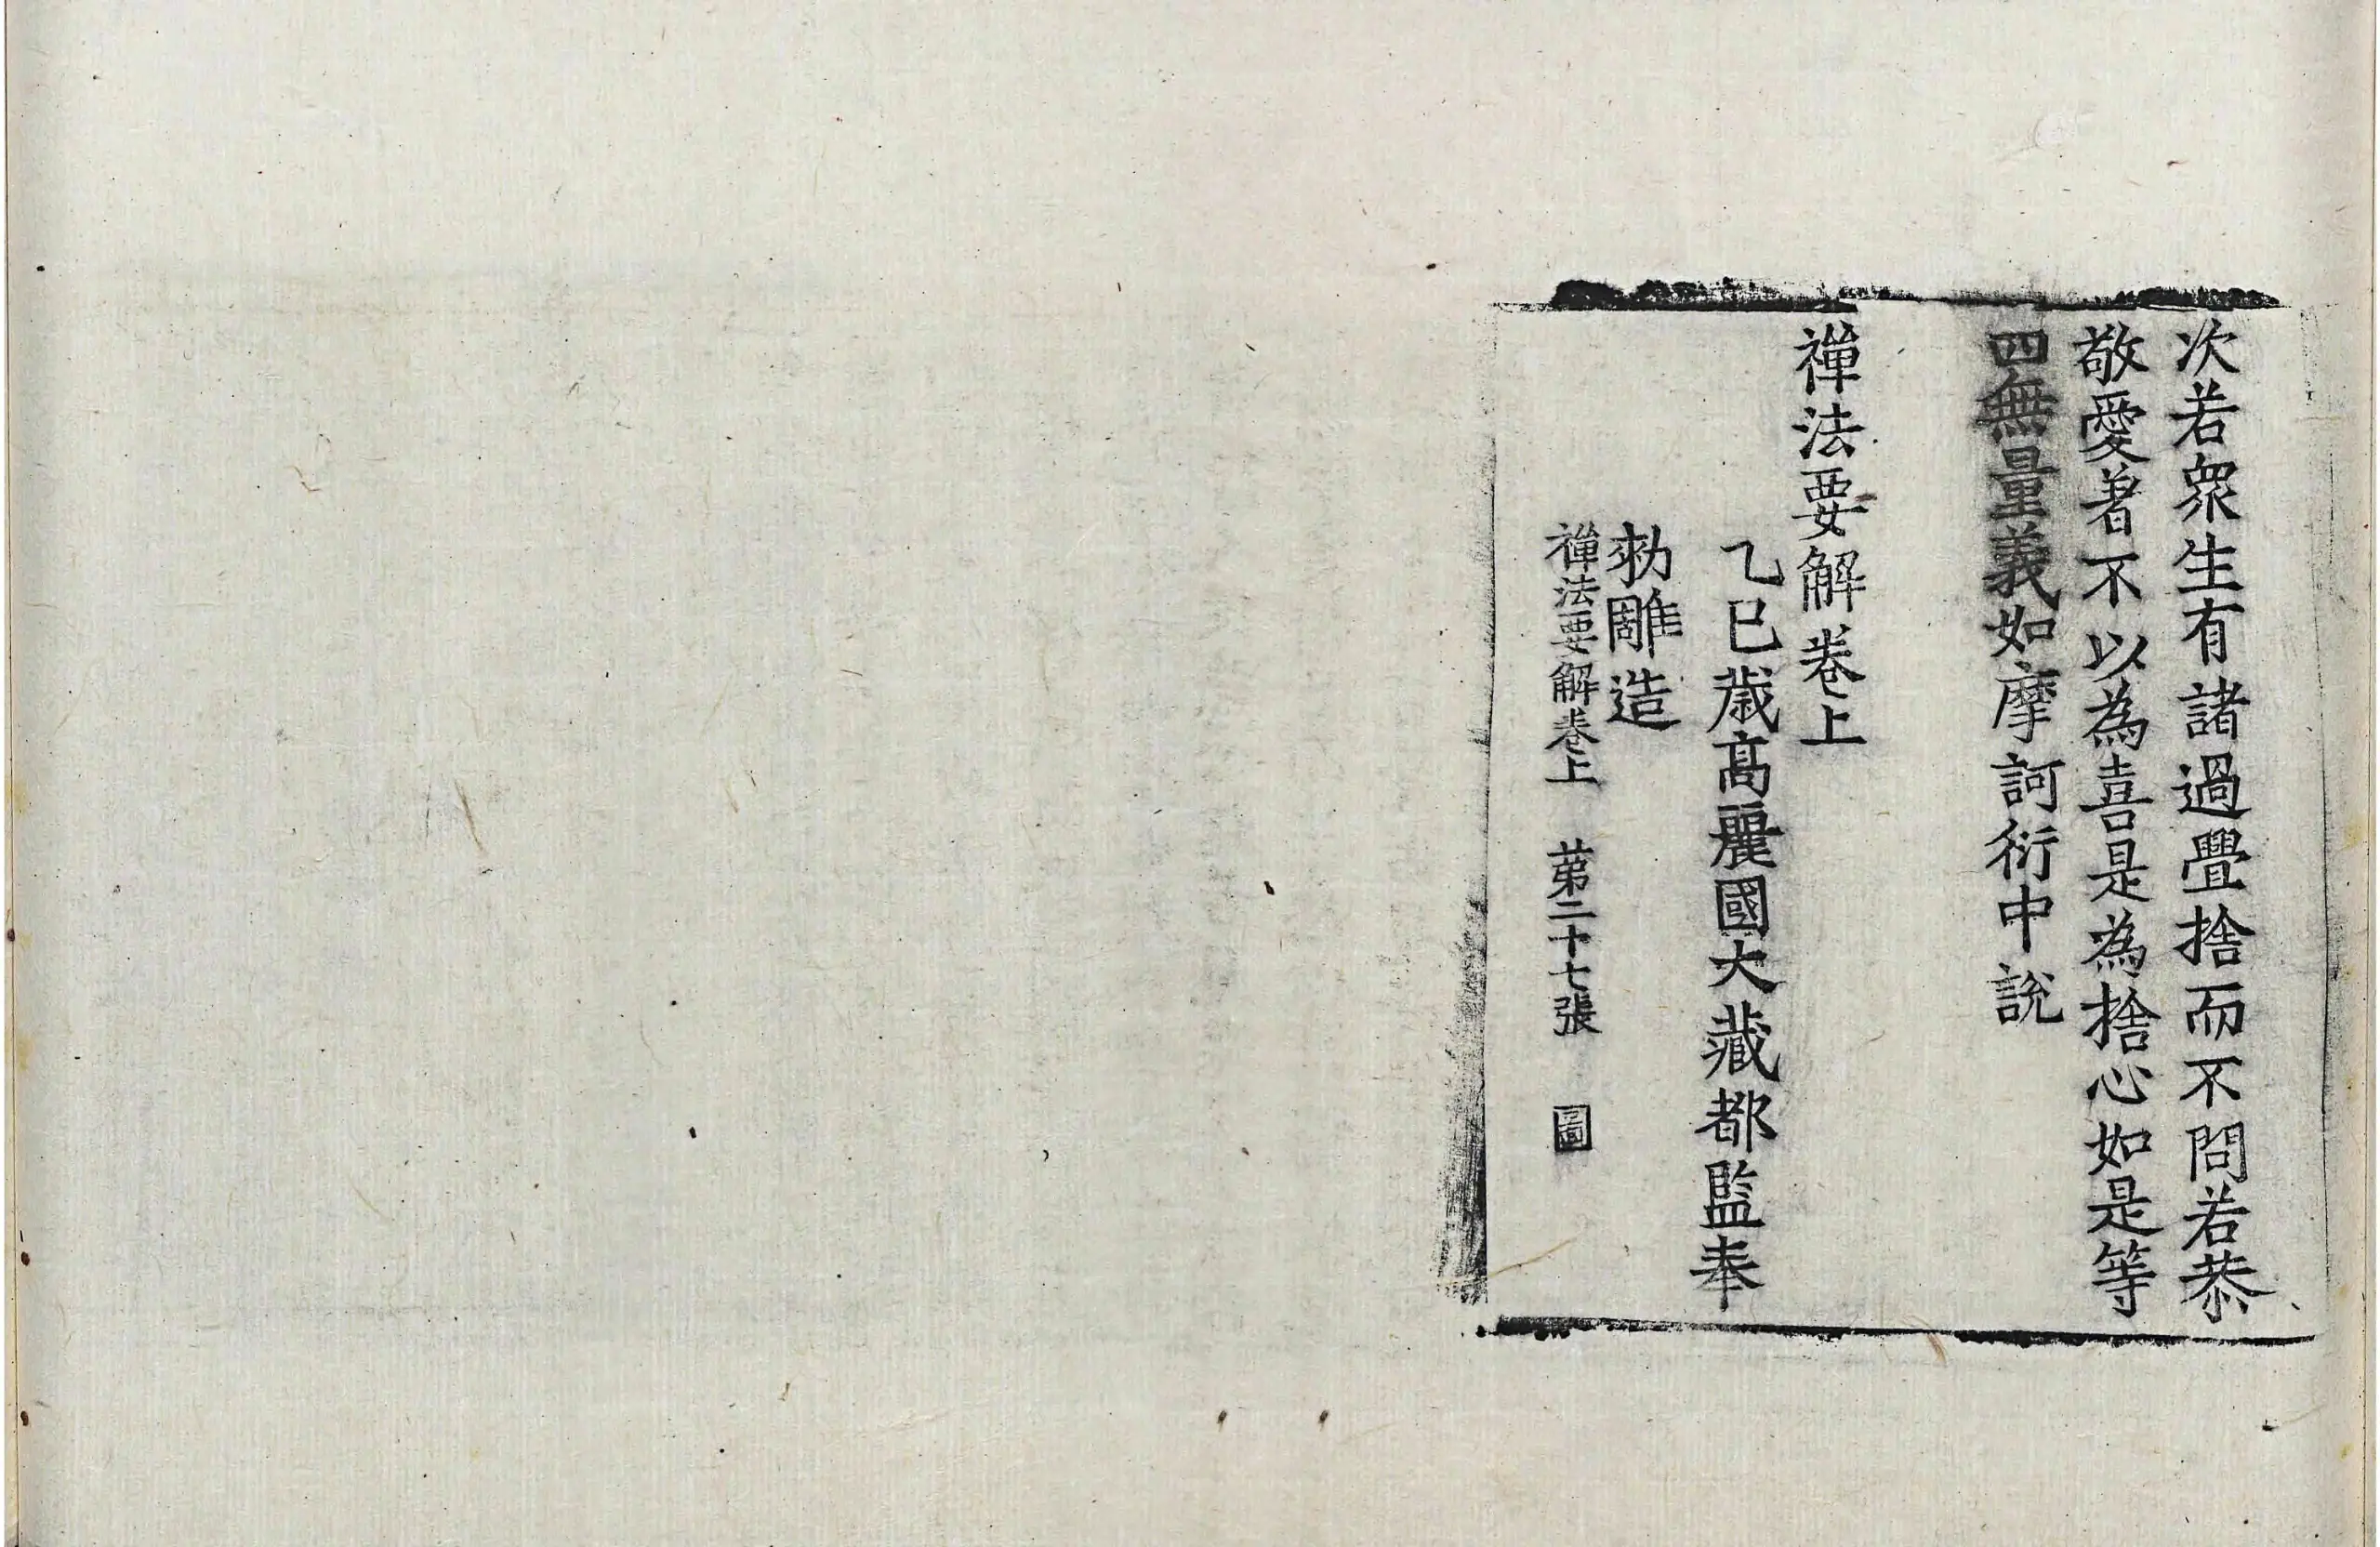 次若衆生有諸過舋捨而不問若恭
敬愛著不以為喜是為捨心如是等
四無量義如摩訶衍中說
禪法要解卷上
乙巳歲高麗國大藏都監奉
勑雕造
禪法要解卷上 苐二十七張 圖